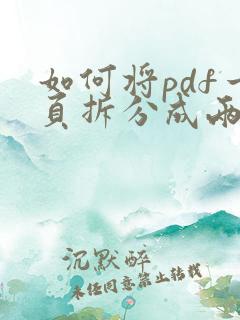 如何将pdf一
页拆分成两
沉默醉
未经同意禁止转载